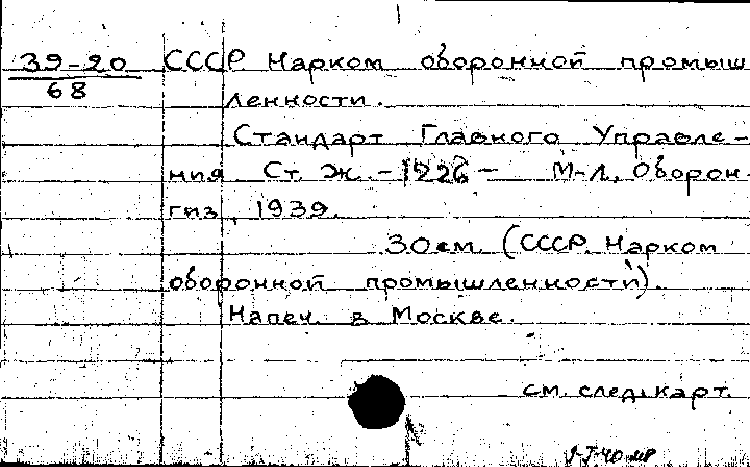 39-20 СССР Нарком оборонной промыш
68
ленности.
Стандарт Главного Управле-
ния Ст. Ж. -1226- М-Л, Оборон
гиз, 1939.
30см. (СССР. Нарком
оборонной промышленности).
Напеч. в Москве.
см. след. карт.